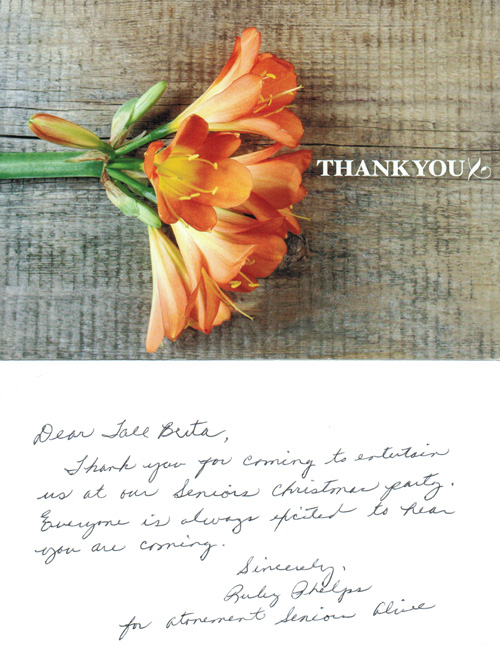 THANK YOU
Dear Tall Berta,
Thank you for coming to entertain
us at our Seniors Christmas party.
Everyone is always excited to hear
you are coming.
Sincerely,
Ruby Phelps
for Atonement Seniors Alive